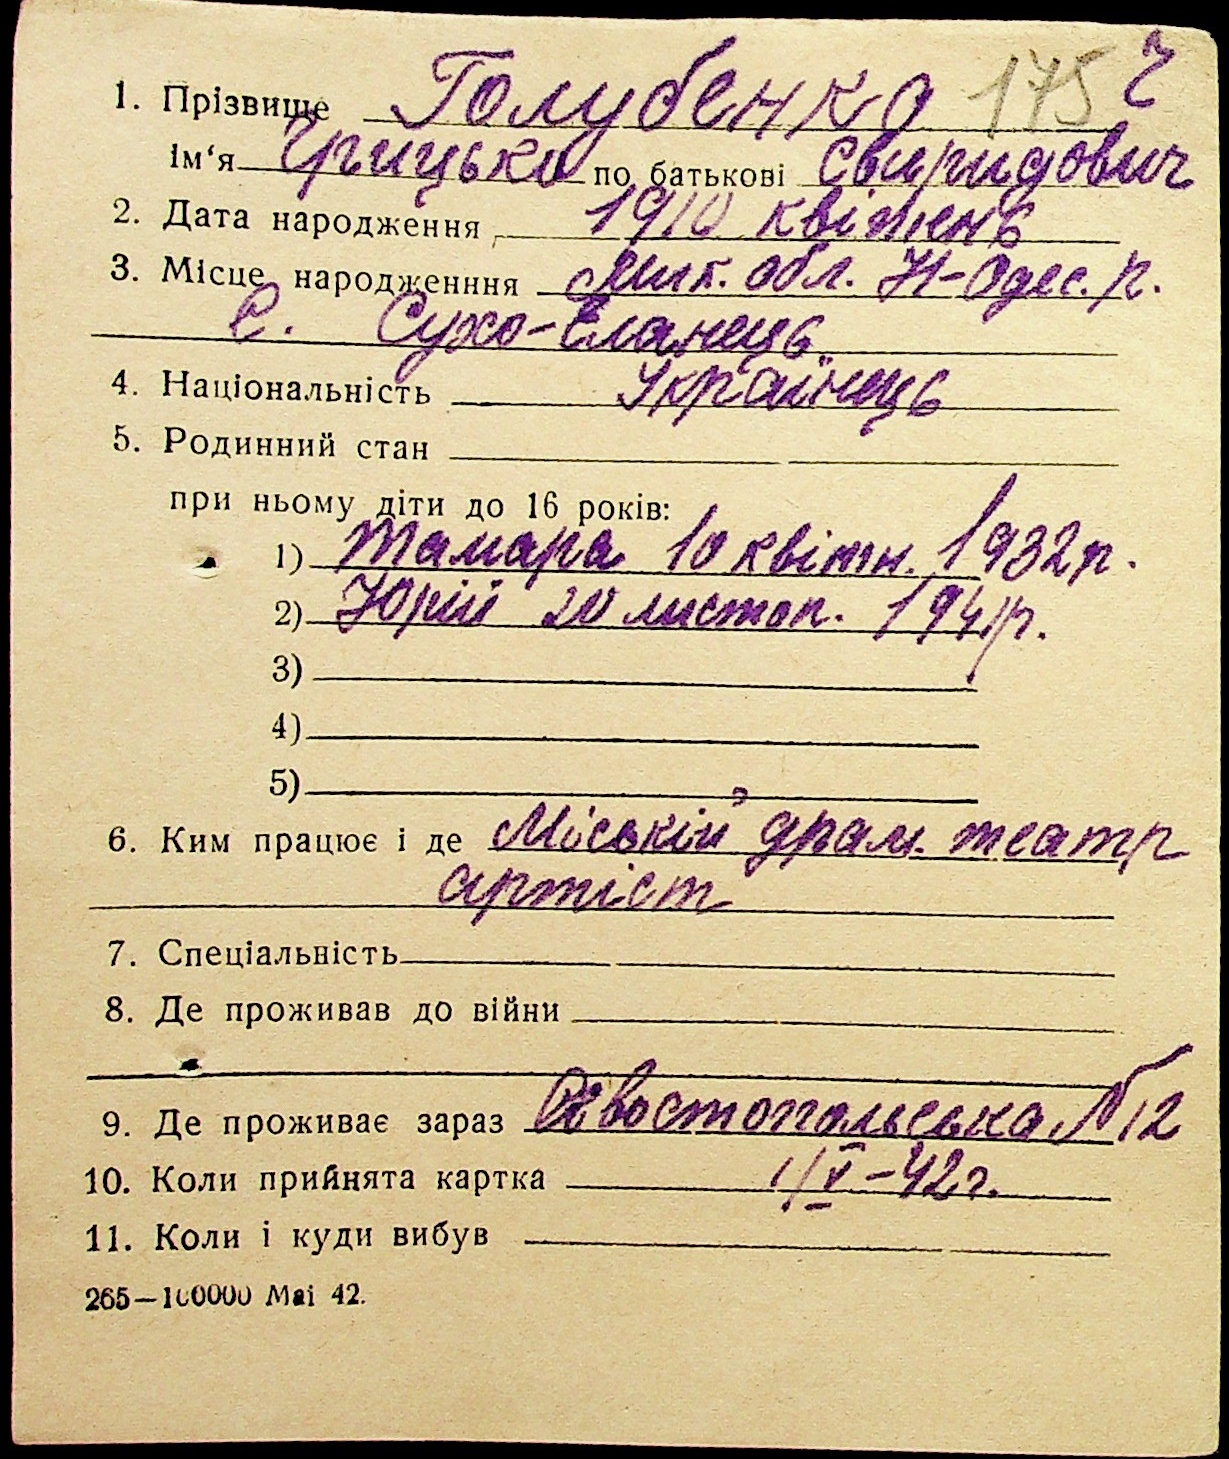 1. Прізвище Голубенко 175 Ч
Ім'я Грицько по батькові Свиридович
2. Дата народження 1910 квітень
3. Місце народженння Мик. обл. Н-Одес. р.
с. Сухо-Еланець
4. Національність Українець
5. Родинний стан
при ньому діти до 16 років:
1) Тамара 10 квітн. 1932 р.
2) Юрій 20 листоп. 1941 р.
3)
4)
5)
6. Ким працює і де Міській драм. театр
артіст
7. Спеціальність
8. Де проживав до війни
9. Де проживає зараз Севостопольська № 12
10. Коли прийнята картка 1/V-42 г.
11. Коли і куди вибув
265—100000 Маі 42.